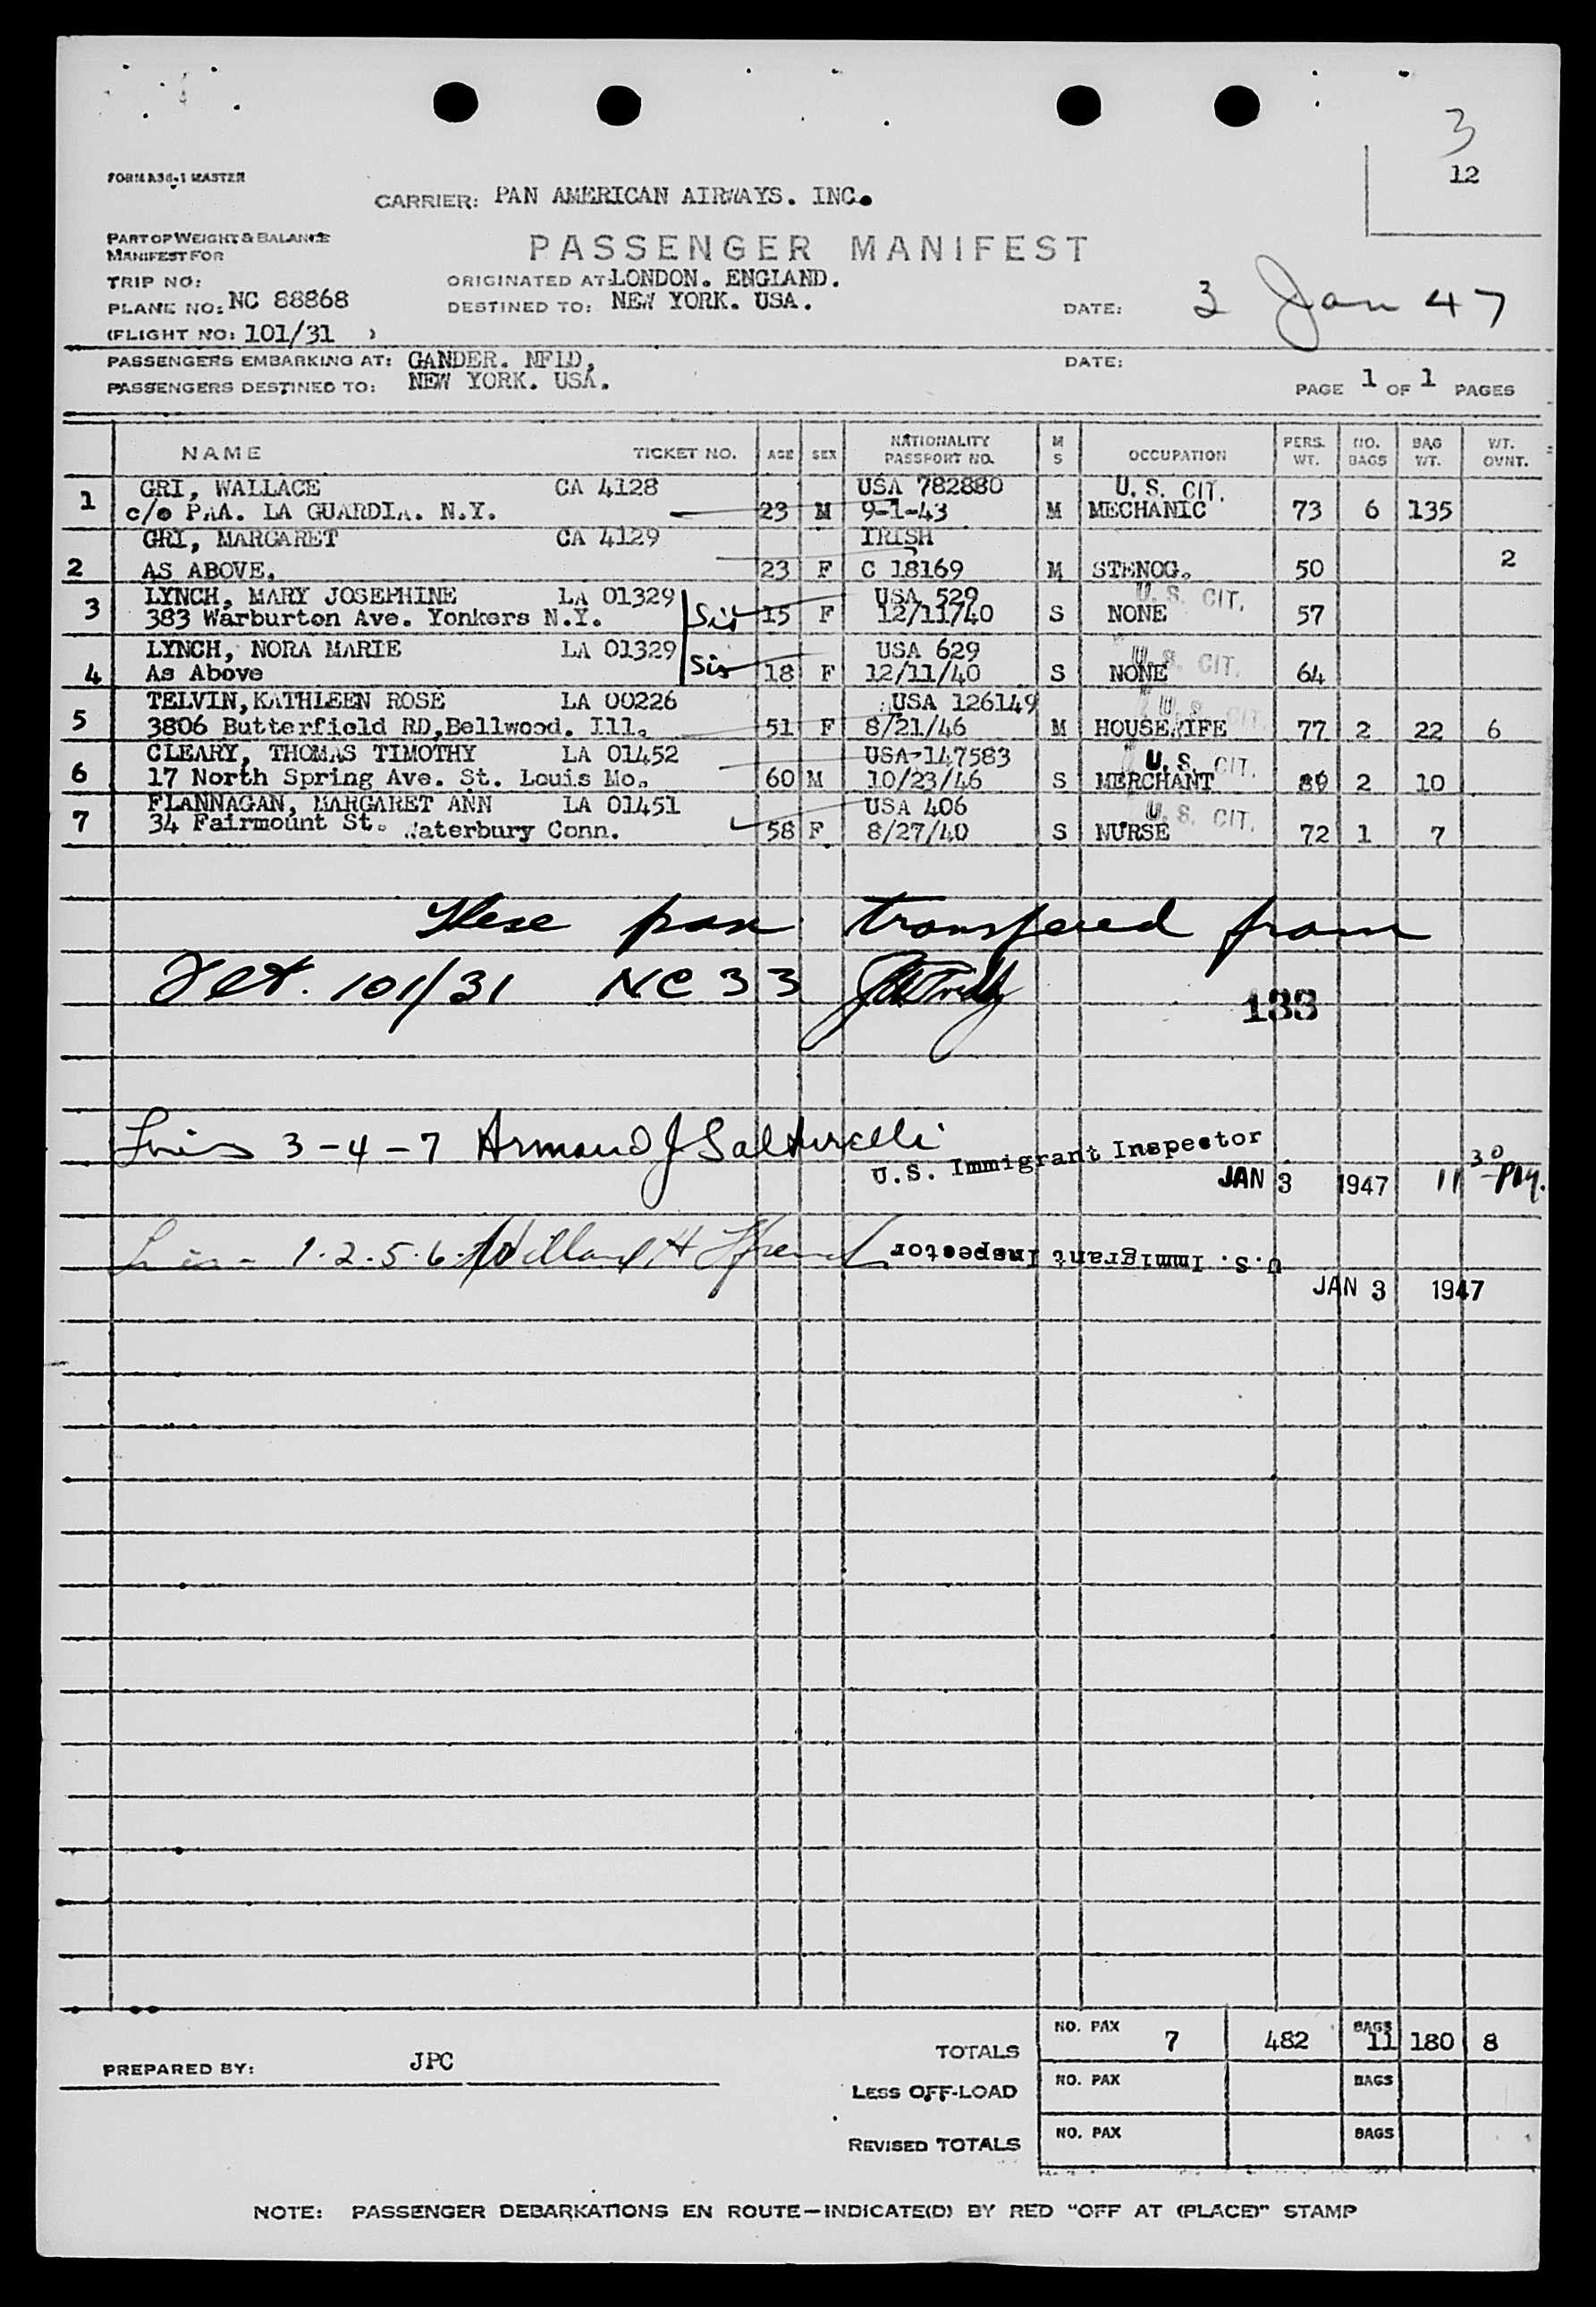 3
12
FORM A36-1 MASTER
CARRIER: PAN AMERICAN AIRWAYS. INC.
PART OF WEIGHT & BALANCE
MANIFEST FOR
PASSENGER MANIFEST
TRIP NO:
ORIGINATED AT: LONDON. ENGLAND.
PLANE NO: NC 88868
DESTINED TO: NEW YORK. USA.
DATE: 3 Jan 47
(FLIGHT NO: 101/31 )
PASSENGERS EMBARKING AT: GANDER. NFLD,
DATE:
PASSENGERS DESTINED TO: NEW YORK. USA.
PAGE 1 OF 1 PAGES
NAME TICKET NO. AGE SEX NATIONALITY PASSPORT NO. M S OCCUPATION PERS. WT. NO. BAGS BAG WT. WT. OVNT.
GRI, WALLACE CA 4128 USA 782880 U.S. CIT.
1 c/o PAA. LA GUARDIA. N.Y. 23 M 9-1-43 M MECHANIC 73 6 135
GRI, MARGARET CA 4129 IRISH
2 AS ABOVE. 23 F C 18169 M STENOG. 50 2
LYNCH, MARY JOSEPHINE LA 01329 USA 529 U.S. CIT.
3 383 Warburton Ave. Yonkers N.Y. Sis 15 F 12/11/40 S NONE 57
LYNCH, NORA MARIE LA 01329 USA 629 U.S. CIT.
4 As Above Sis 18 F 12/11/40 S NONE 64
TELVIN,KATHLEEN ROSE LA 00226 USA 126149 U.S. CIT.
5 3806 Butterfield RD,Bellwood. Ill. 51 F 8/21/46 M HOUSEWIFE 77 2 22 6
CLEARY, THOMAS TIMOTHY LA 01452 USA-147583 U.S. CIT.
6 17 North Spring Ave. St. Louis Mo. 60 M 10/23/46 S MERCHANT 89 2 10
FLANNAGAN, MARGARET ANN LA 01451 USA 406 U.S. CIT.
7 34 Fairmount St. Waterbury Conn. 58 F 8/27/40 S NURSE 72 1 7
These pax transfered from
Flt. 101/31 NC 33
133
Lines 3-4-7 Armand J Salturelli
U.S. Immigrant Inspector
JAN 3 1947 11 30 PM.
Lines - 1.2.5.6. Willard H
U.S. Immigrant Inspector
JAN 3 1947
TOTALS NO. PAX 7 482 BAGS 11 180 8
PREPARED BY: JPC
LESS OFF-LOAD NO. PAX BAGS
REVISED TOTALS NO. PAX BAGS
NOTE: PASSENGER DEBARKATIONS EN ROUTE—INDICATE(D) BY RED "OFF AT (PLACE)" STAMP